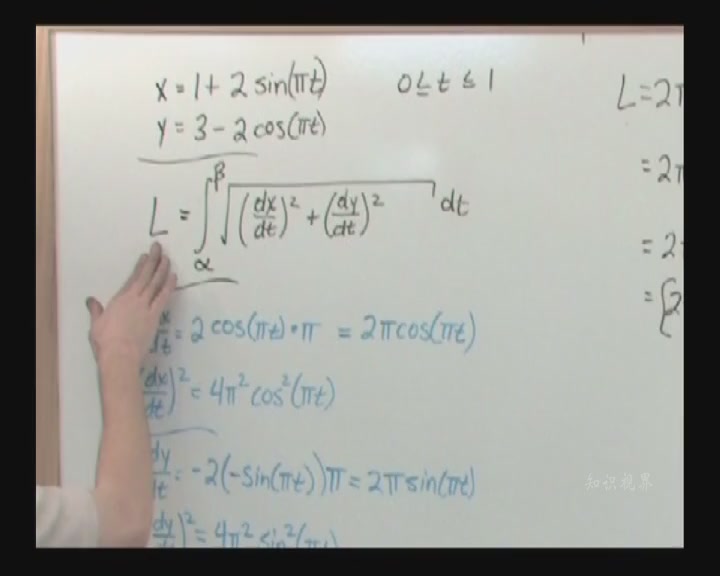 x = 1 + 2 sin(πt)    0 ≤ t ≤ 1
y = 3 - 2 cos(πt)
L = ∫_α^β √((dx/dt)² + (dy/dt)²) dt
dx/dt = 2 cos(πt)·π = 2π cos(πt)
(dx/dt)² = 4π² cos²(πt)
dy/dt = -2(-sin(πt))π = 2π sin(πt)
(dy/dt)² = 4π² sin²(πt)
L = 2π
= 2π
= 2
= 2
知识视界